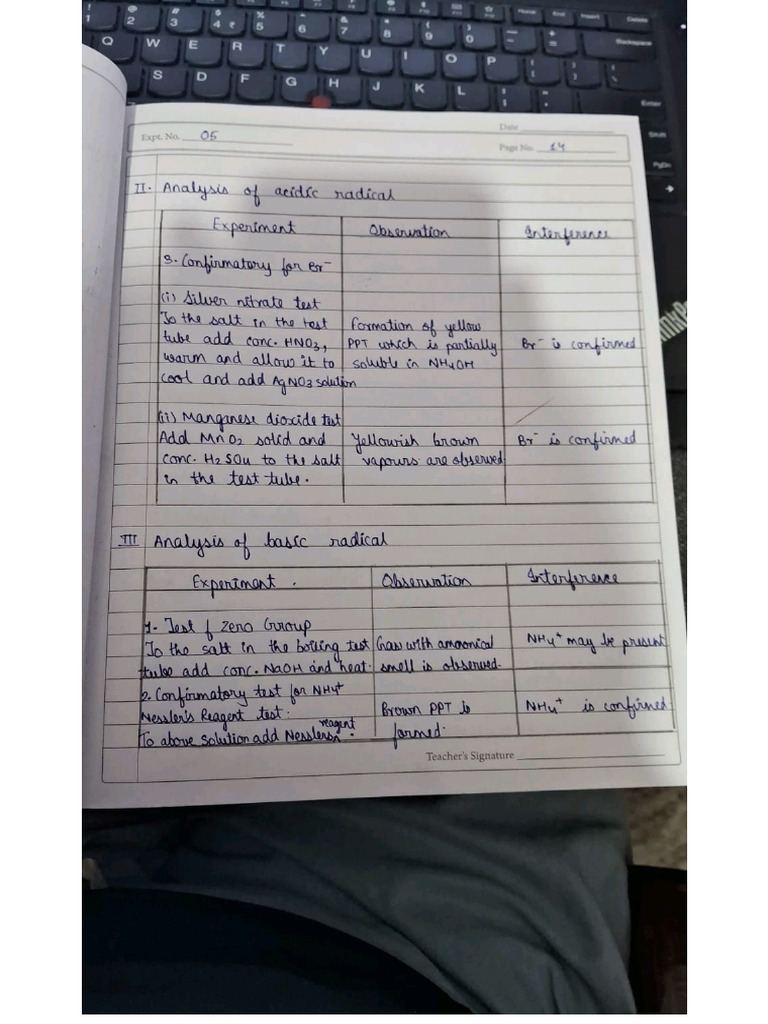 Expt. No. 05
Date
Page No. 14
II. Analysis of acidic radical
Experiment Observation Interference
3. Confirmatory for Br⁻
(i) Silver nitrate test
To the salt in the test Formation of yellow
tube add conc. HNO3, PPT which is partially Br⁻ is confirmed
warm and allow it to soluble in NH4OH
cool and add AgNO3 solution
(ii) Manganese dioxide test
Add MnO2 solid and Yellowish brown Br⁻ is confirmed
conc. H2SO4 to the salt vapours are observed
in the test tube.
III Analysis of basic radical
Experiment. Observation Interference
1. Test of Zero Group
To the salt in the boiling test Gas with ammonical NH4⁺ may be present
tube add conc. NaOH and heat. smell is observed.
2. Confirmatory test for NH4⁺
Nessler's Reagent test: Brown PPT is NH4⁺ is confirmed
To above solution add Nesslers reagent. formed.
Teacher's Signature